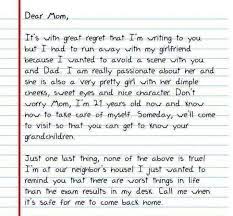 Dear Mom,
It's with great regret that I'm writing to you
but I had to run away with my girlfriend
because I wanted to avoid a scene with you
and Dad. I am really passionate about her and
she is also a very pretty girl with her dimple
cheeks, sweet eyes and nice character. Don't
worry Mom, I'm 21 years old now and know
how to take care of myself. Someday, we'll come
to visit so that you can get to know your
grandchildren.
Just one last thing, none of the above is true!
I'm at our neighbor's house! I just wanted to
remind you that there are worst things in life
than the exam results in my desk. Call me when
it's safe for me to come back home.